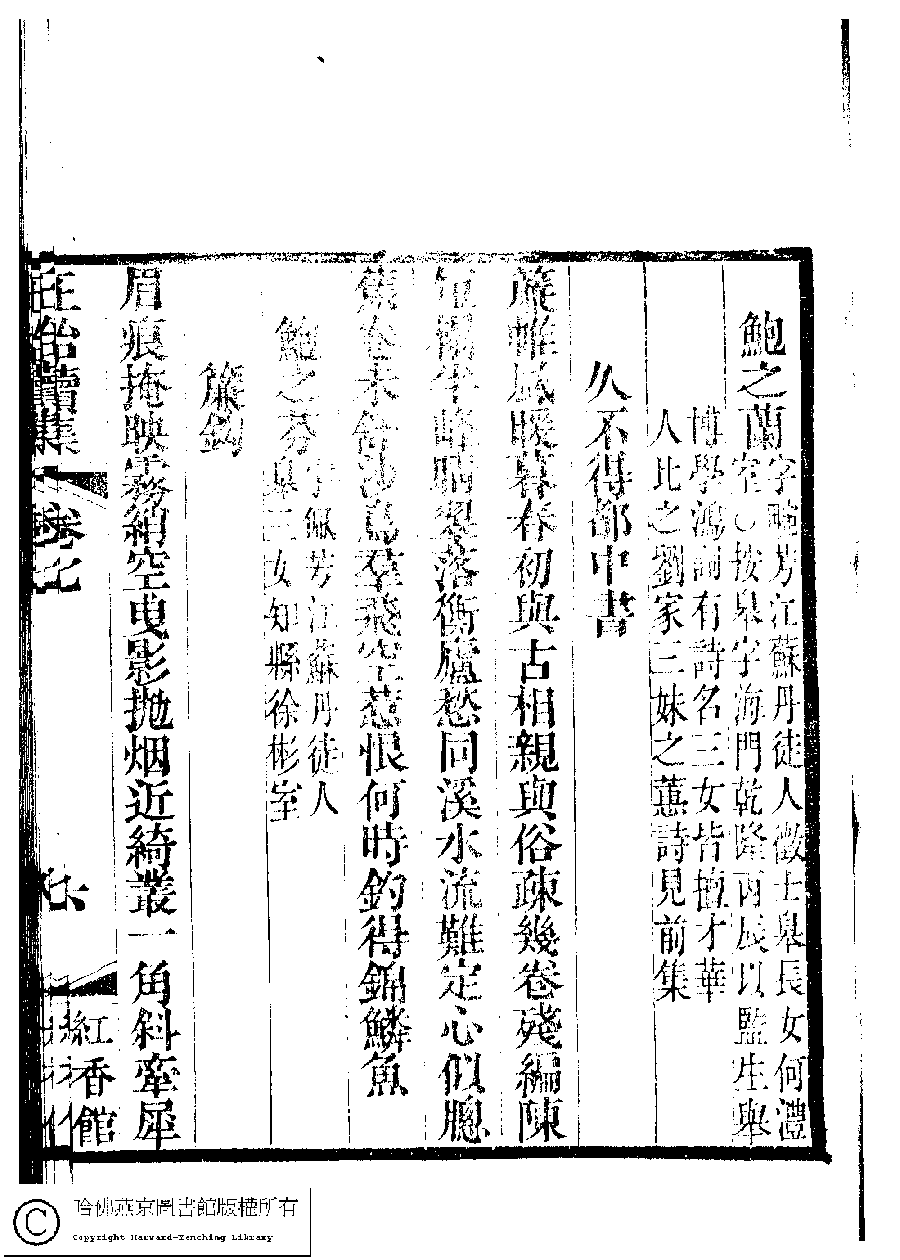 鮑之蘭字畹芳江蘇丹徒人徵士臯長女何澧
室○按臯字海門乾隆丙辰以監生舉
博學鴻詞有詩名三女皆擅才華
人比之劉家三妹之蕙詩見前集
久不得都中書
簾帷風暖暮春初與古相親與俗疎幾卷殘編陳
落衡廬愁同溪水流難定心似
卷未舒沙鳥羣飛空惹恨何時釣得錦鱗魚
鮑之芬字佩芳江蘇丹徒人
臯三女知縣徐彬室
簾鈎
眉痕掩映霧綃空曳影拋烟近綺叢一角斜牽犀
續集
紅香館
哈佛燕京圖書館版權所有
Copyright Harvard-Yenching Library